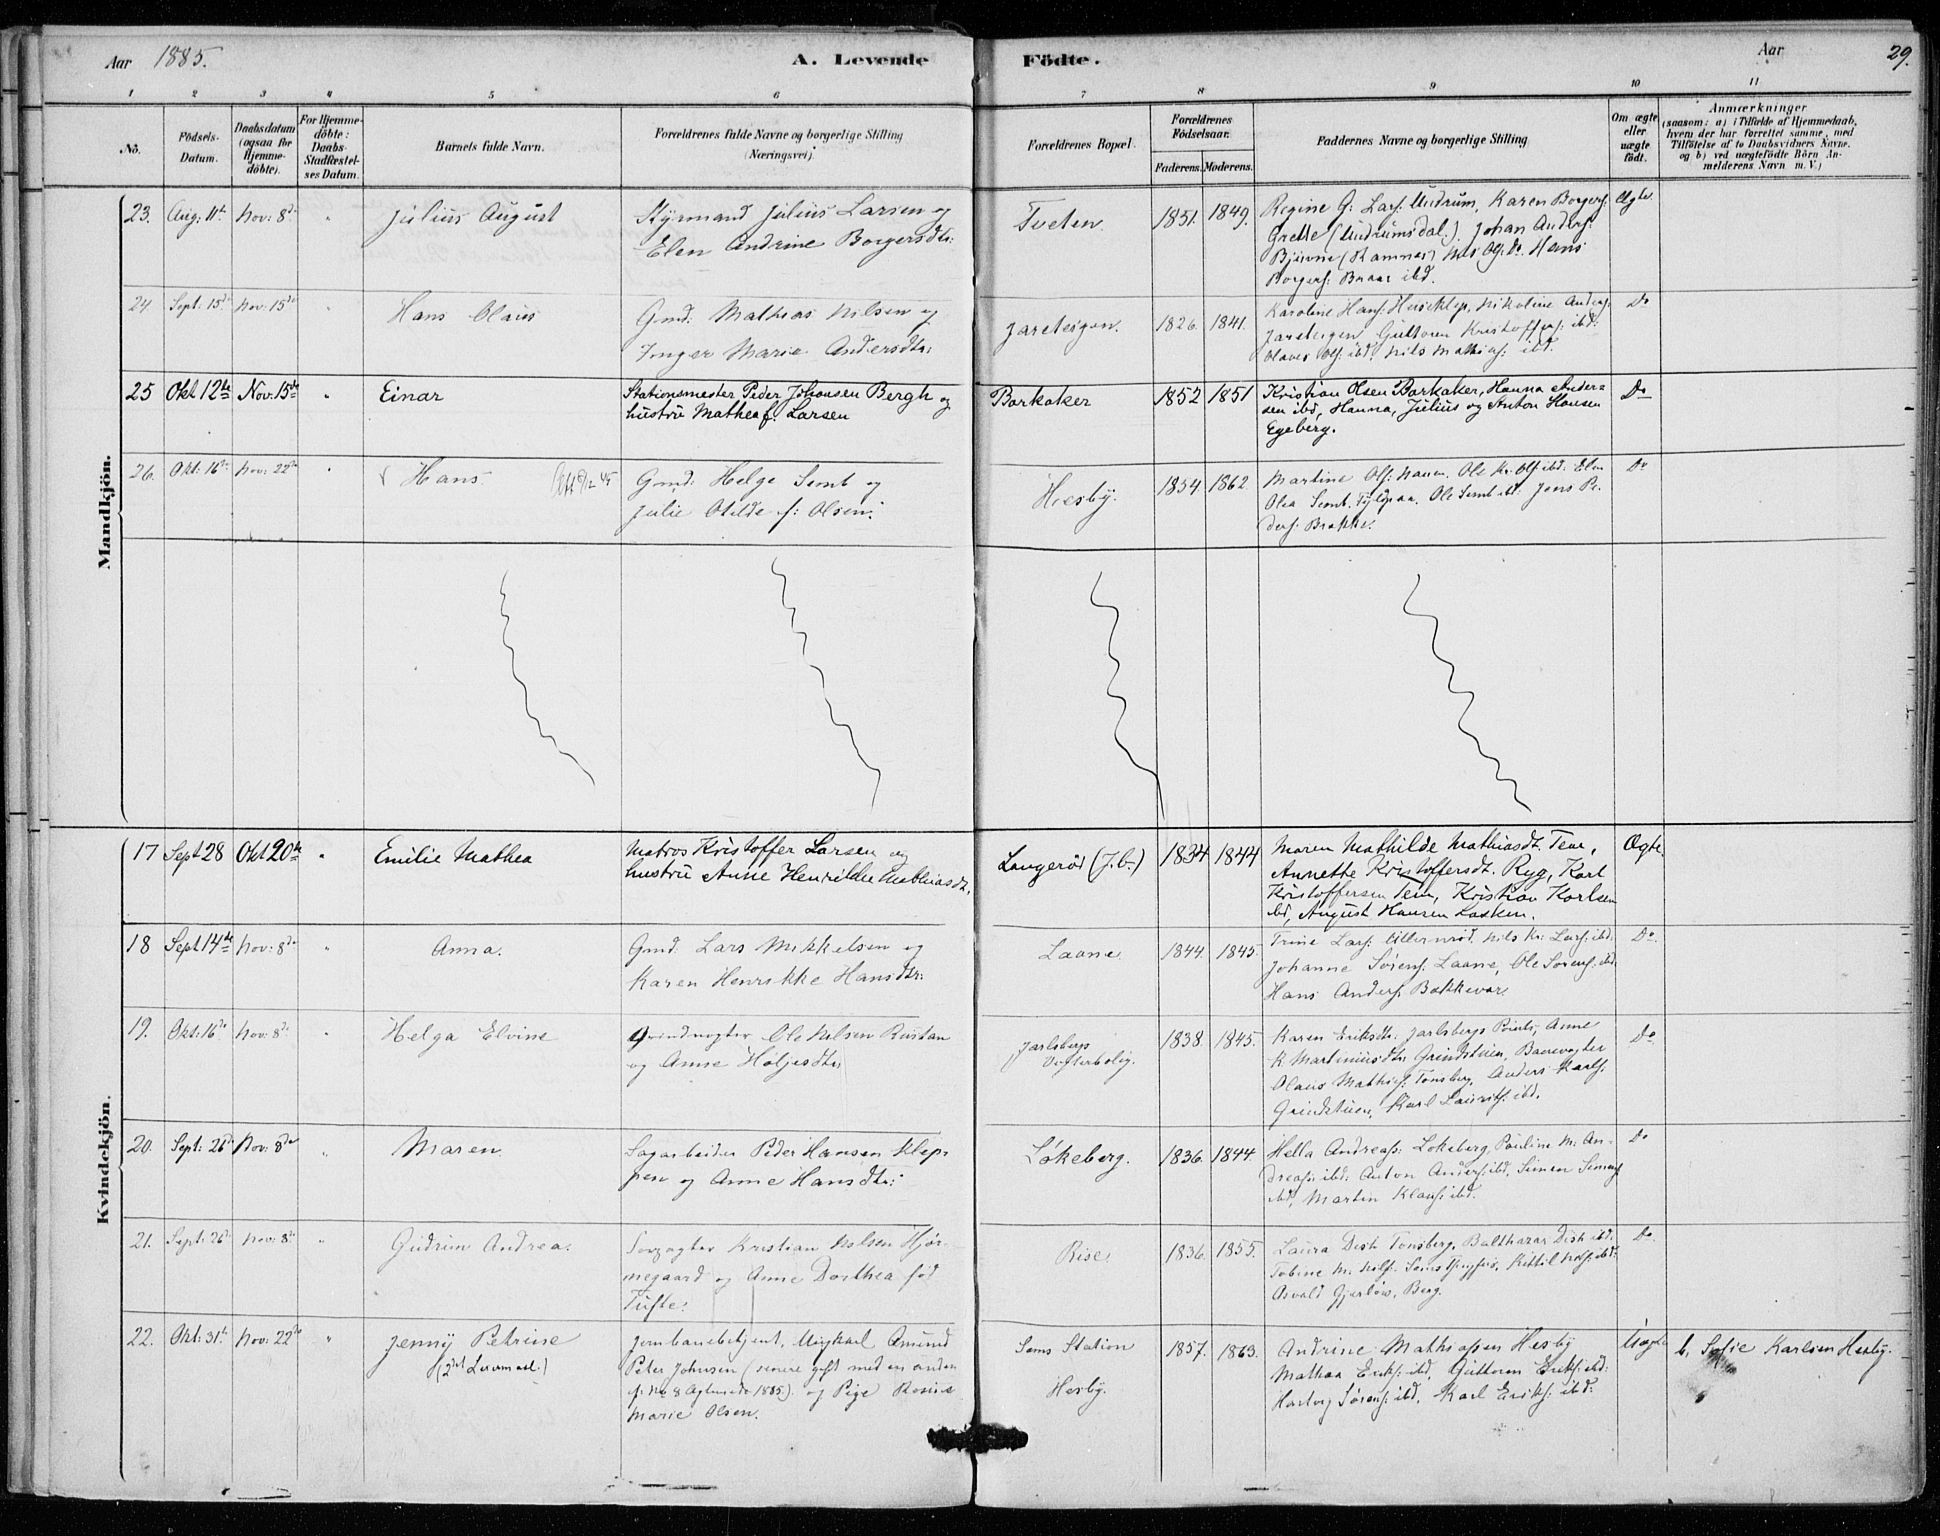 Aar 1885.
A. Levende Födte.
Aar
29.
1 2 3 4 5 6 7 8 9 10 11
No.
Födsels-Datum.
Daabsdatum (ogsaa for Hjemmedöbte).
For Hjemmedöbte: Daabs-Stadfæstelses Datum.
Barnets fulde Navn.
Forældrenes fulde Navne og borgerlige Stilling (Næringsvei).
Forældrenes Bopæl.
Forældrenes Födselsaar.
Faderens. Moderens.
Faddernes Navne og borgerlige Stilling
Om ægte eller uægte födt.
Anmærkninger
(saasom: a) i Tilfælde af Hjemmedaab,
hvem der har forrettet samme, med
Tilföielse af to Daabsvidners Navne.
og b) ved uægtefödte Börn An-
melderens Navn m. V.)
Mandkjön.
23. Aug: 11te Nov: 8de " Julius August
Styrmand Julius Larsen og
Elen Andrine Borgersdtr:
Tveten. 1851. 1849.
Regine G: Lars: Undrum, Karen Borgers:
Grette (Undrumsdal.). Johan Anders:
Bjerone (Ramnes) Nils Ols: do. Hans
Borgers: Braar ibd.
Ægte.
24. Sept: 15de Nov: 15de " Hans Olaus
Gmd: Mathias Nilsen og
Inger Marie Andersdtr:
Jareteigen. 1826. 1841.
Karoline Hans: Nikoline Anders:
Jareteigen Guttorm Kristoffers: ibd:
Olaves Ols: ibd. Nils Mathias: ibd.
Do
25 Okt 12te Nov. 15de " Einar
Stationsmester Peder Johansen Bergh og
hustru Mathea f. Larsen
Barkaker 1852 1851
Kristian Olsen Barkaker, Hanna Ander=
sen ibd, Hanna, Julius og Anton Hansen
Egeberg.
Do
26. Okt: 16de Nov: 22de " Hans
Gmd: Helge Semb og
Julie Otilde f: Olsen.
Hesby. 1854. 1862.
Martine Ols: Nauen. Ole Kr. Ols: ibd: Elen
Olea Semb. Ole Semb ibd: Jens Pe-
ders: Brekke.
Do
Kvindekjön.
17 Sept 28 Okt 20de " Emilie Mathea
Matros Kristoffer Larsen og
hustru Anne Henrikke Mathiasdt.
Langerød (J.b.) 1834 1844
Maren Mathilde Mathiasdt. Tem,
Annette Kristoffersdt. Ryg, Karl
Kristoffersen Tem, Kristian Karlsen
ibd, August Hansen Lasken.
Ægte.
18 Sept 14de Nov: 8de " Anna.
Gmd: Lars Mikkelsen og
Karen Henrikke Hansdtr:
Laane 1844. 1845.
Trine Lars: Ullernrød, Nils Kr: Lars: ibd:
Johanne Sørens: Laane, Ole Sørens: ibd.
Hans Anders: Bakkevar.
Do.
19. Okt: 16de Nov: 8de " Helga Elvine
Grindvogter Ole Nilsen Rustan
og Anne Holjesdtr:
Jarlsbergs Vogterbolig. 1838. 1845.
Karen Eriksdtr: Jarlsbergs Anne
K. Martiniusdtr. Grindstuen, Banevogter
Olaus Mathias: Tønsberg, Anders Karls.
Grindstuen, Karl Laurits: ibd.
Do
20. Sept: 26de Nov: 8de " Maren
Sagarbeider Peder Hansen Klep-
pen og Anne Hansdtr:
Løkeberg. 1836. 1844.
Hella Andreas: Løkeberg, Pauline M: An-
dreas: ibd: Anton Anders: ibd. Simen Simens:
ibd, Martin Klaus: ibd.
Do
21. Sept: 26de Nov: 8de " Gudrun Andrea.
Kristian Nilsen Hjør-
negaard og Anne Dorthea fød
Tufte.
Rise. 1836. 1855.
Laura Disk Tønsberg, Balthazar Disk ibd.
Tobine M. Nils: Kittil Nils: ibd:
Osvald Gjerløw, Berg.
Do.
22. Okt: 31te Nov: 22de " Jenny Petrine
(2det Leiermaal.)
Jernbanebetjent, Ungkarl Amund
Peter Johnsen (senere gift med en anden
1885.) og Pige
Marie Olsen.
Sems Station
Hesby.
1857. 1863.
Andrine Mathiassen Hesby
Mathea Eriks: ibd, Guttorm Eriks: ibd:
Hartvig Sørens: ibd. Karl Eriks: ibd:
Uægte
b. Sofie Karlsen Hesby.